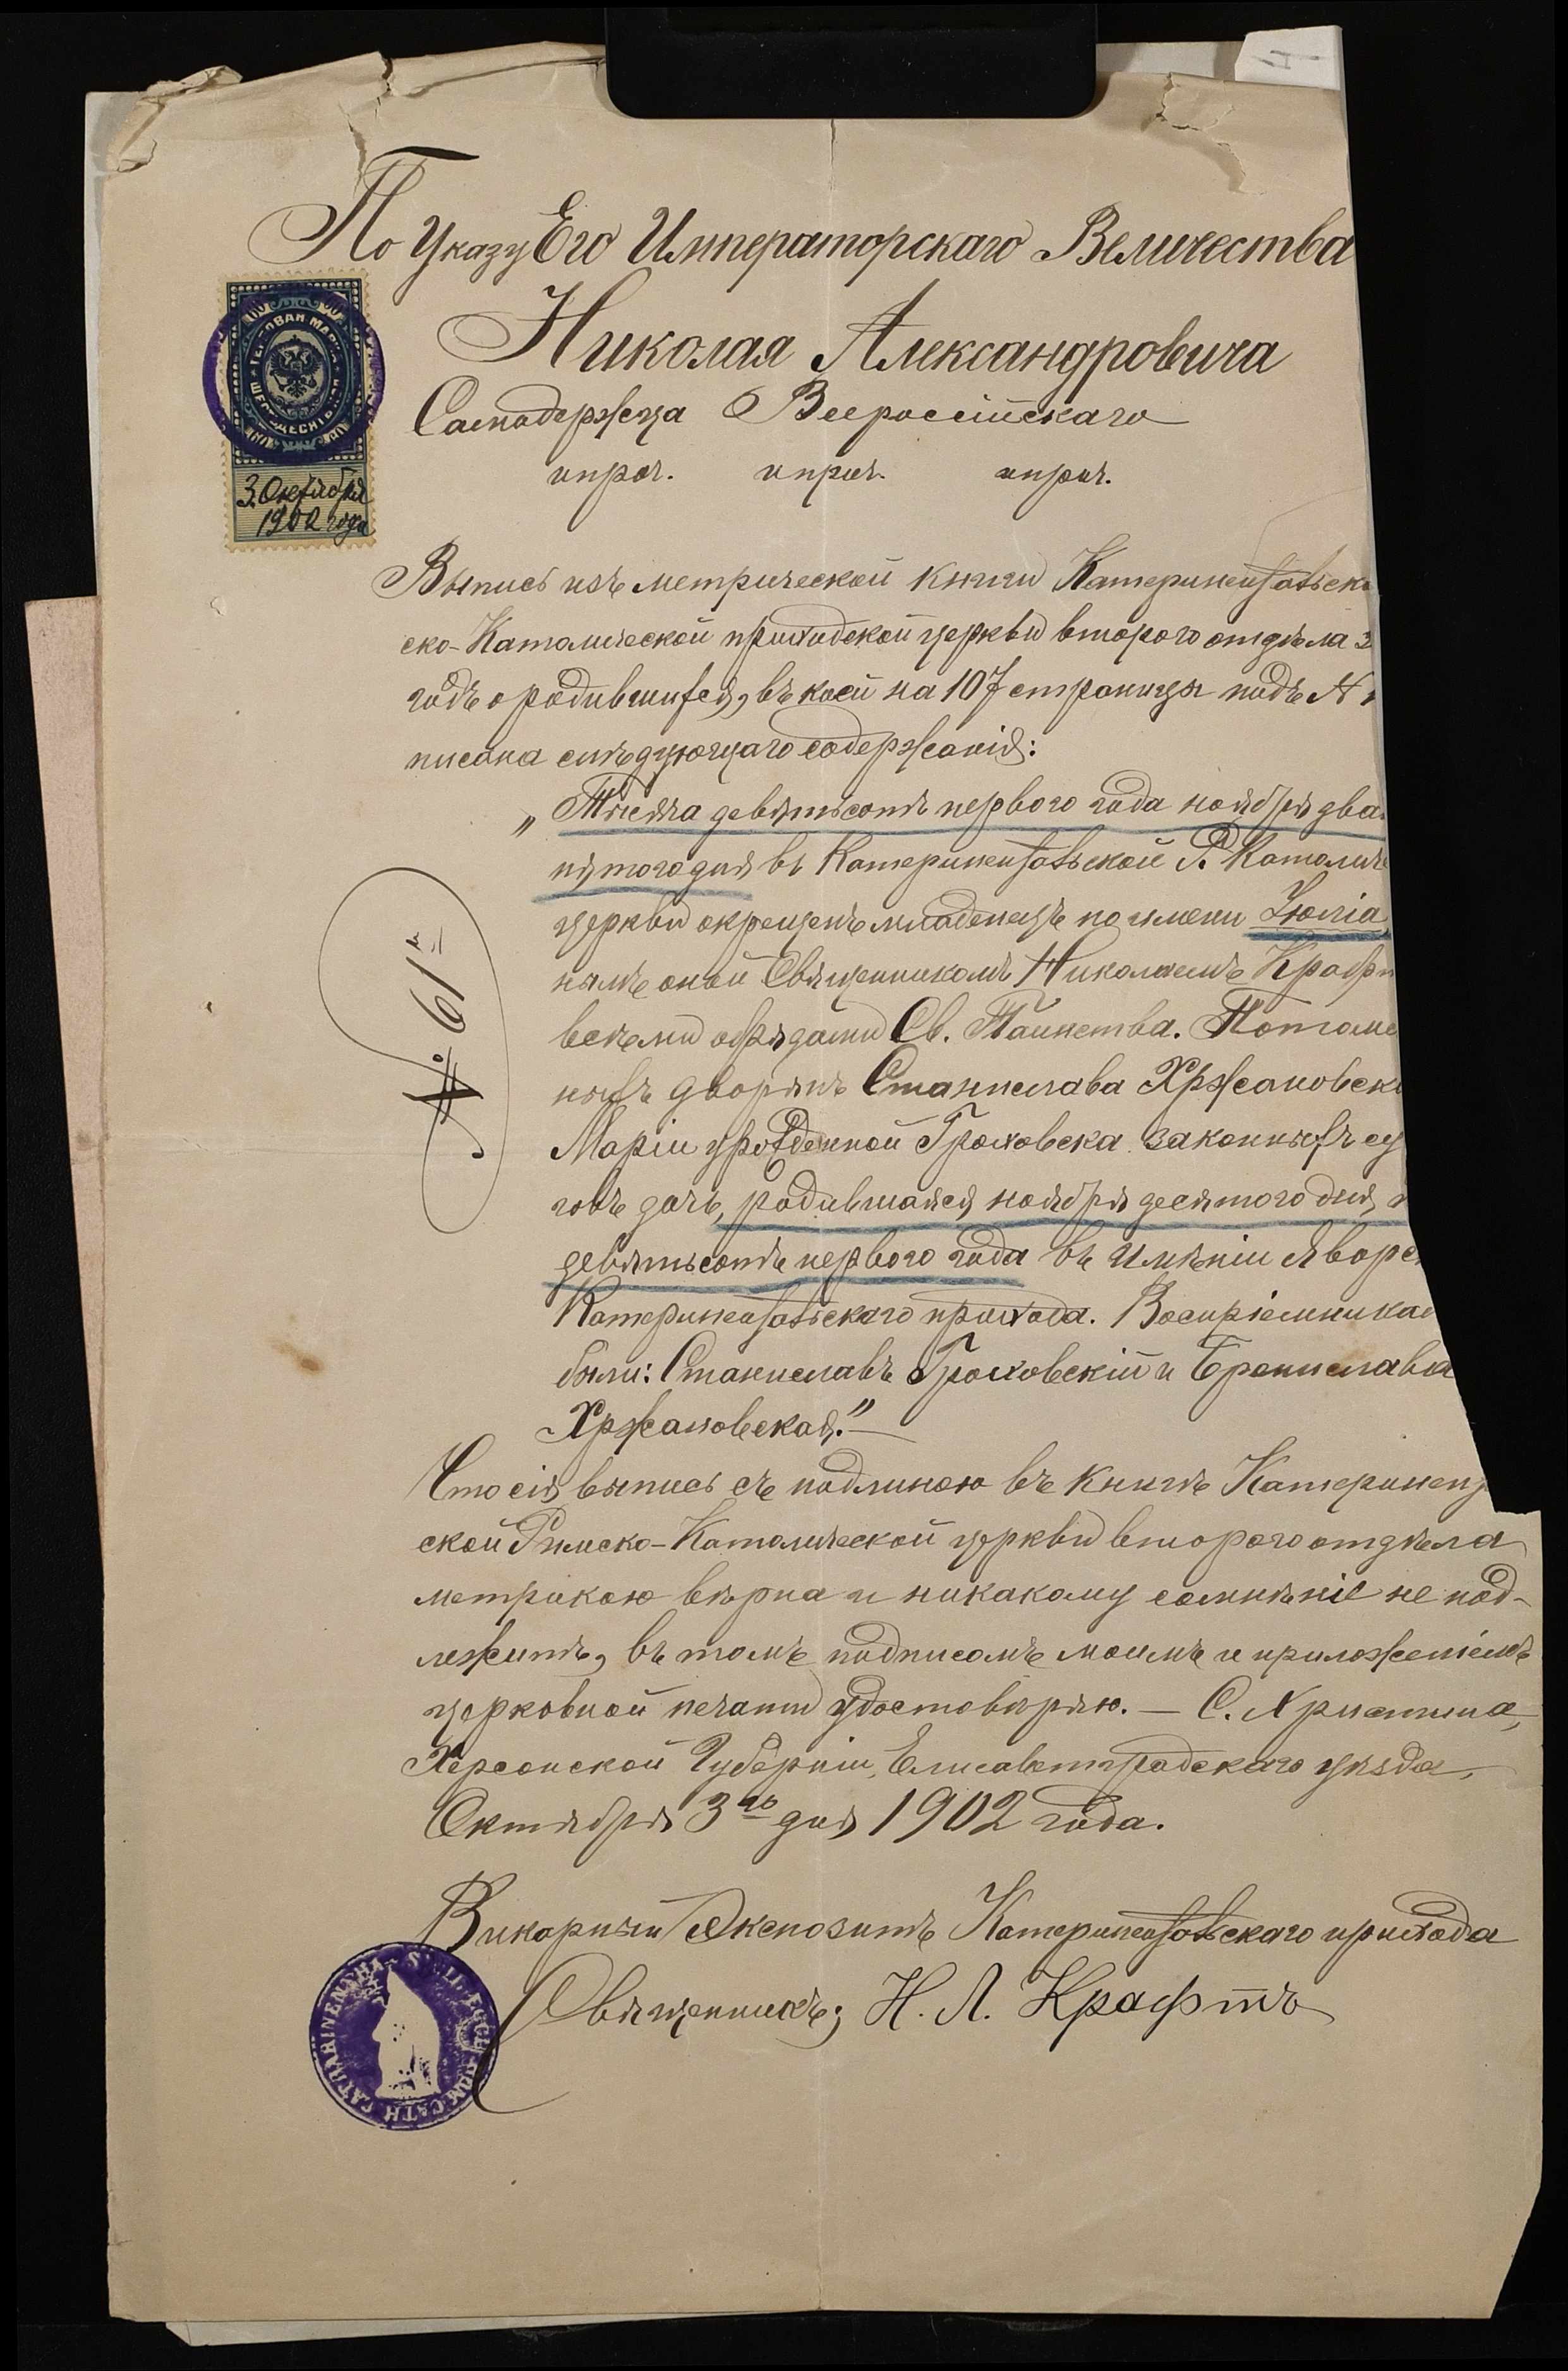 По Указу Его Императорскаго Величества
Николая Александровича
Самодержца Всероссійскаго
и проч. и проч. и проч.
3. Октября
1902 года
Выпись изъ метрической книги Катериненфельско
ско-Католической приходской церкви второго отдѣла з
годъ о родившихся, въ коей на 107 страницѣ подъ №
писана слѣдующаго содержанія:
„Тысяча девятьсотъ перваго года ноября два
пятого дня въ Катериненфельской Р. Католиче
церкви окрещенъ младенецъ по имени Юлія
нымъ оной Священникомъ Николаемъ Крафт
всѣми обрядами Св. Таинства. Потомс
ныхъ дворянъ Станислава Хржановск
Маріи урожденной Гроховска законныхъ су
говъ дочь, родившаяся ноября десятого дня,
девятьсотъ первого года въ имѣніи Яворс
Катериненфельскаго прихода. Воспріемника
были: Станиславъ Гроховскій и Брониславa
Хржановская."—
№ 61й
Что сія выпись съ подлиною въ книгѣ Катеринен
ской Римско-Католической церкви второго отдѣла
метрикою вѣрна и никакому сомнѣніе не под-
лежитъ, въ томъ подписомъ моимъ и приложеніемъ
церковной печати удостовѣряю. — С. Христина,
Херсонской Губерніи, Елисаветградскаго уѣзда,
Октября 3го дня 1902 года.
Викарный Экспозитъ Катериненфельскаго прихода
Священникъ; Н. Л. Крафтъ